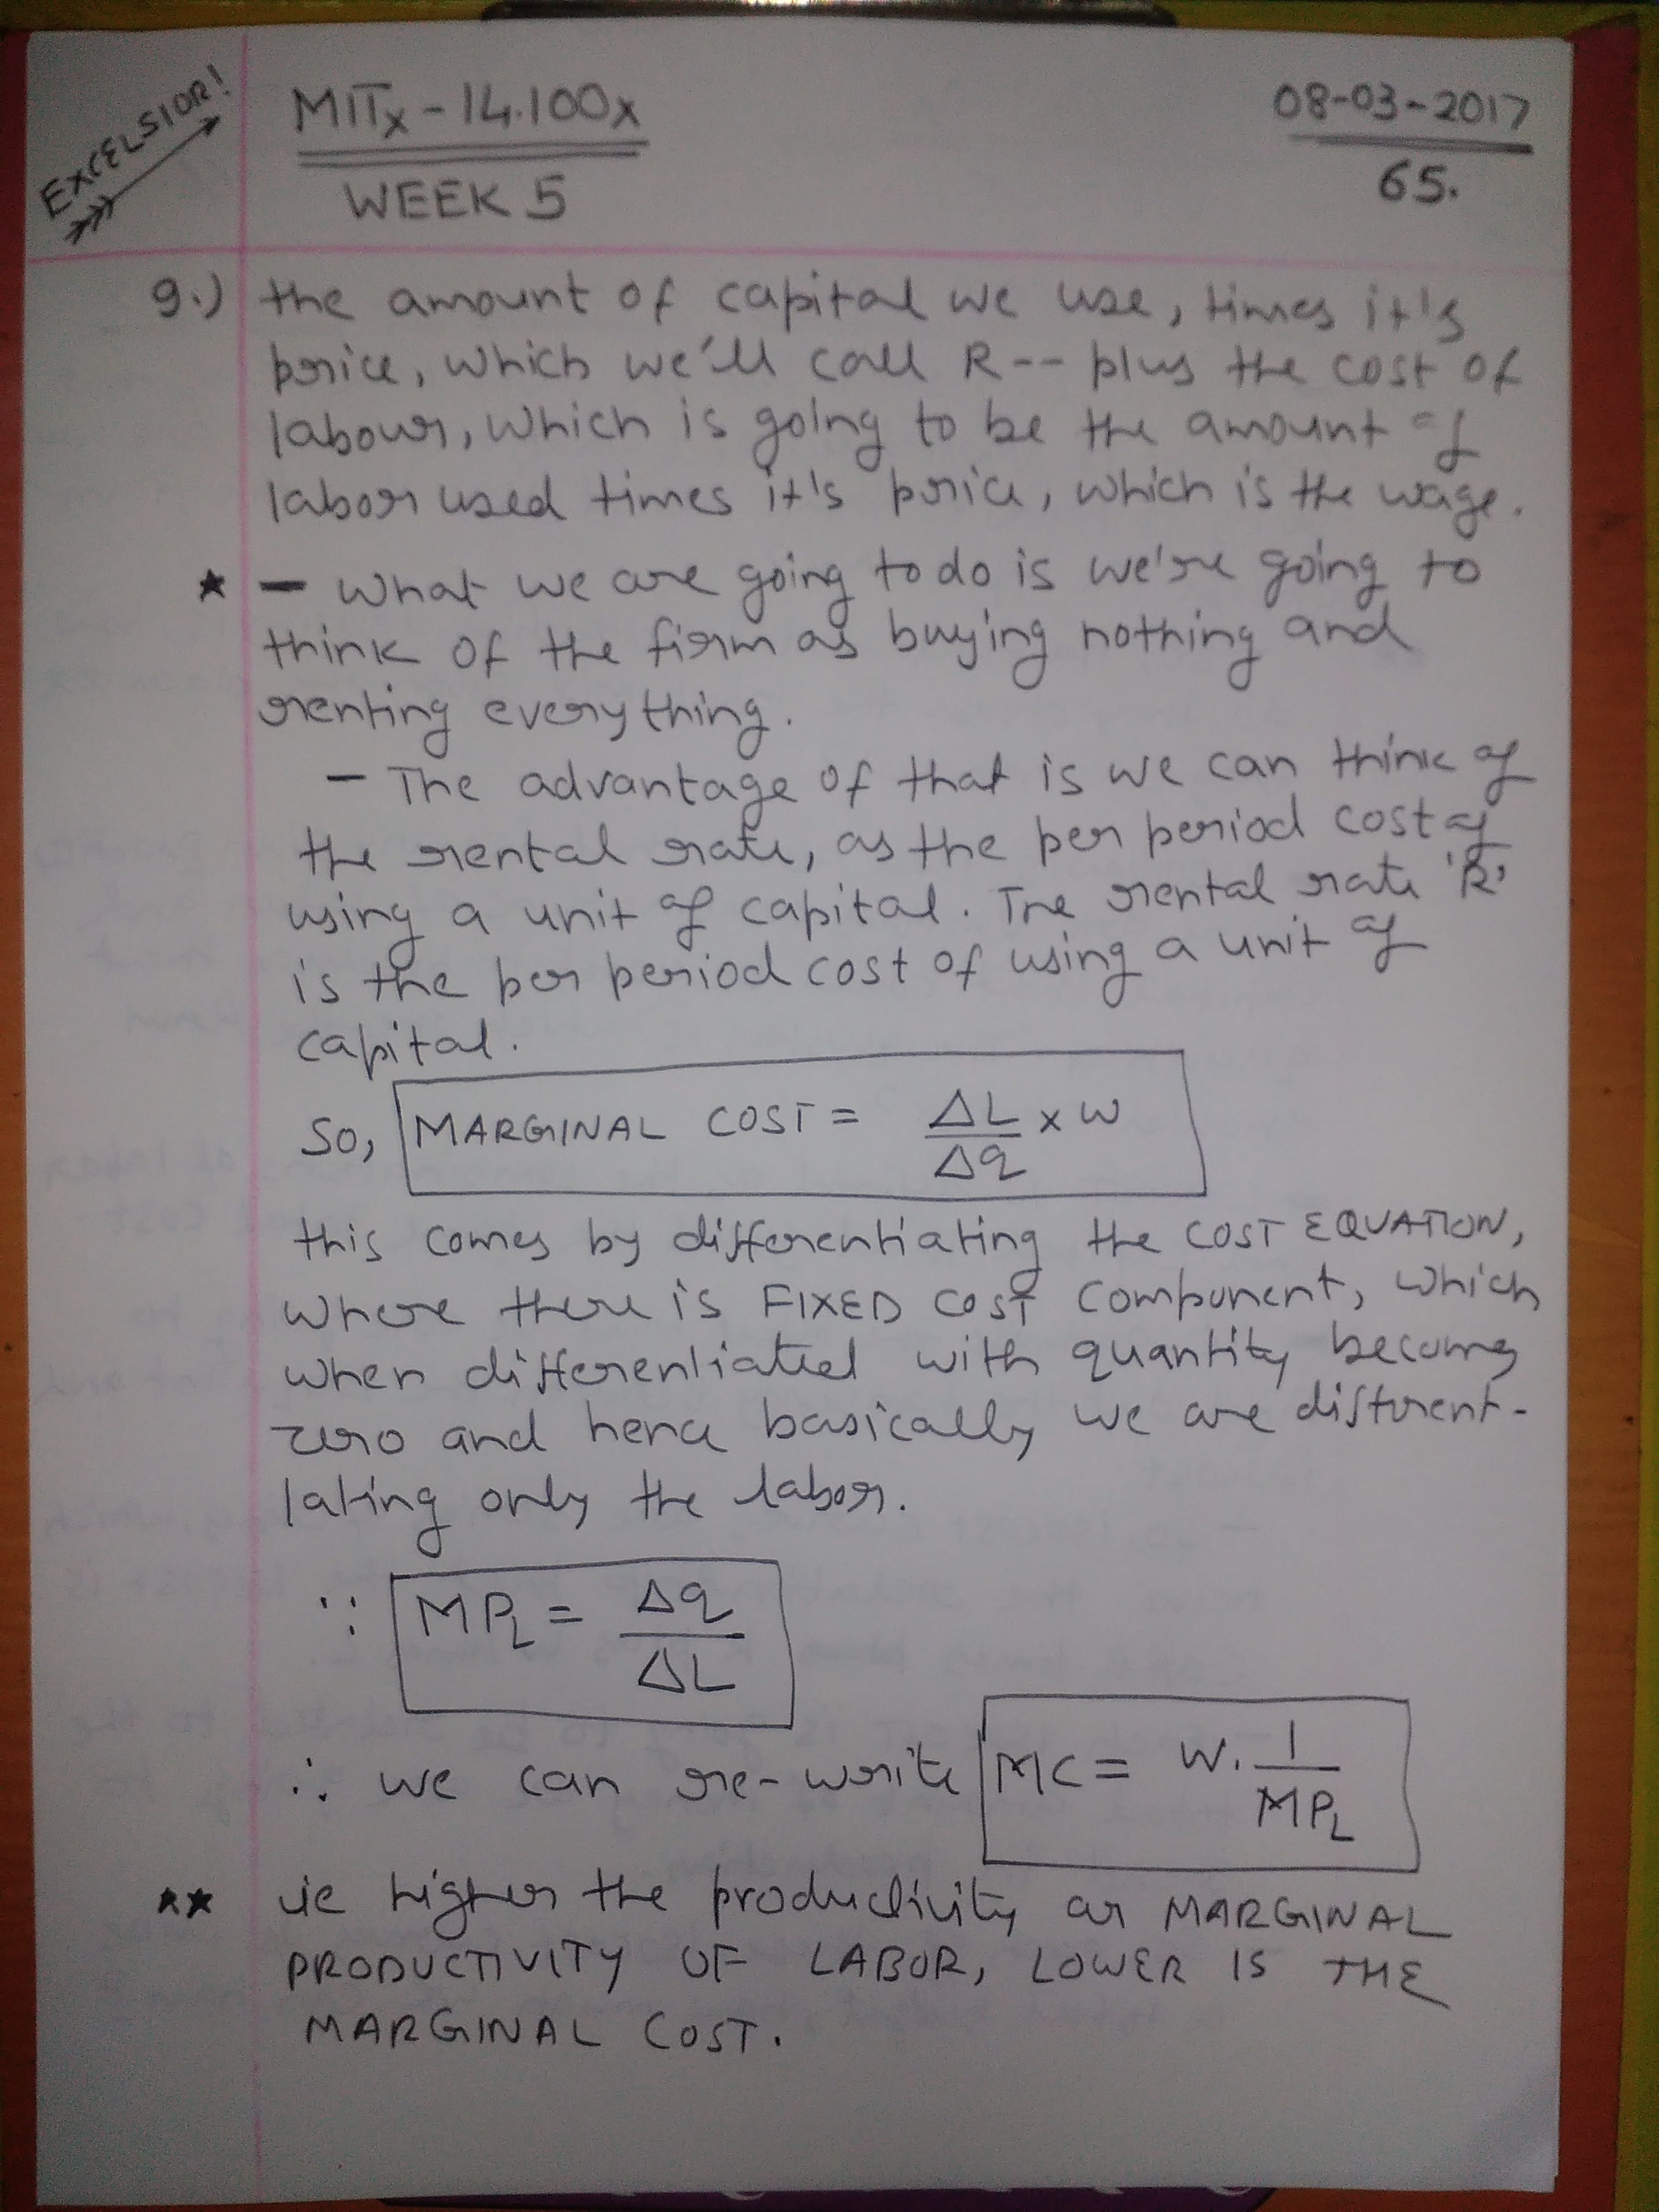 EXCELSIOR!
MITx - 14.100x
WEEK 5
08-03-2017
65.
9.) the amount of capital we use, times it's
price, which we'll call R -- plus the cost of
labour, which is going to be the amount of
labor used times it's price, which is the wage.
★ — What we are going to do is we're going to
think of the firm as buying nothing and
renting everything.
— The advantage of that is we can think of
the rental rate, as the per period cost of
using a unit of capital. The rental rate 'R'
is the per period cost of using a unit of
capital.
So, MARGINAL COST = ΔL/Δq x w
this comes by differentiating the COST EQUATION,
where there is FIXED COST component, which
when differentiated with quantity becomes
zero and hence basically we are different-
iating only the labor.
∵ MPL = Δq/ΔL
∴ we can re-write MC = W. 1/MPL
★★ ie higher the productivity or MARGINAL
PRODUCTIVITY OF LABOR, LOWER IS THE
MARGINAL COST.